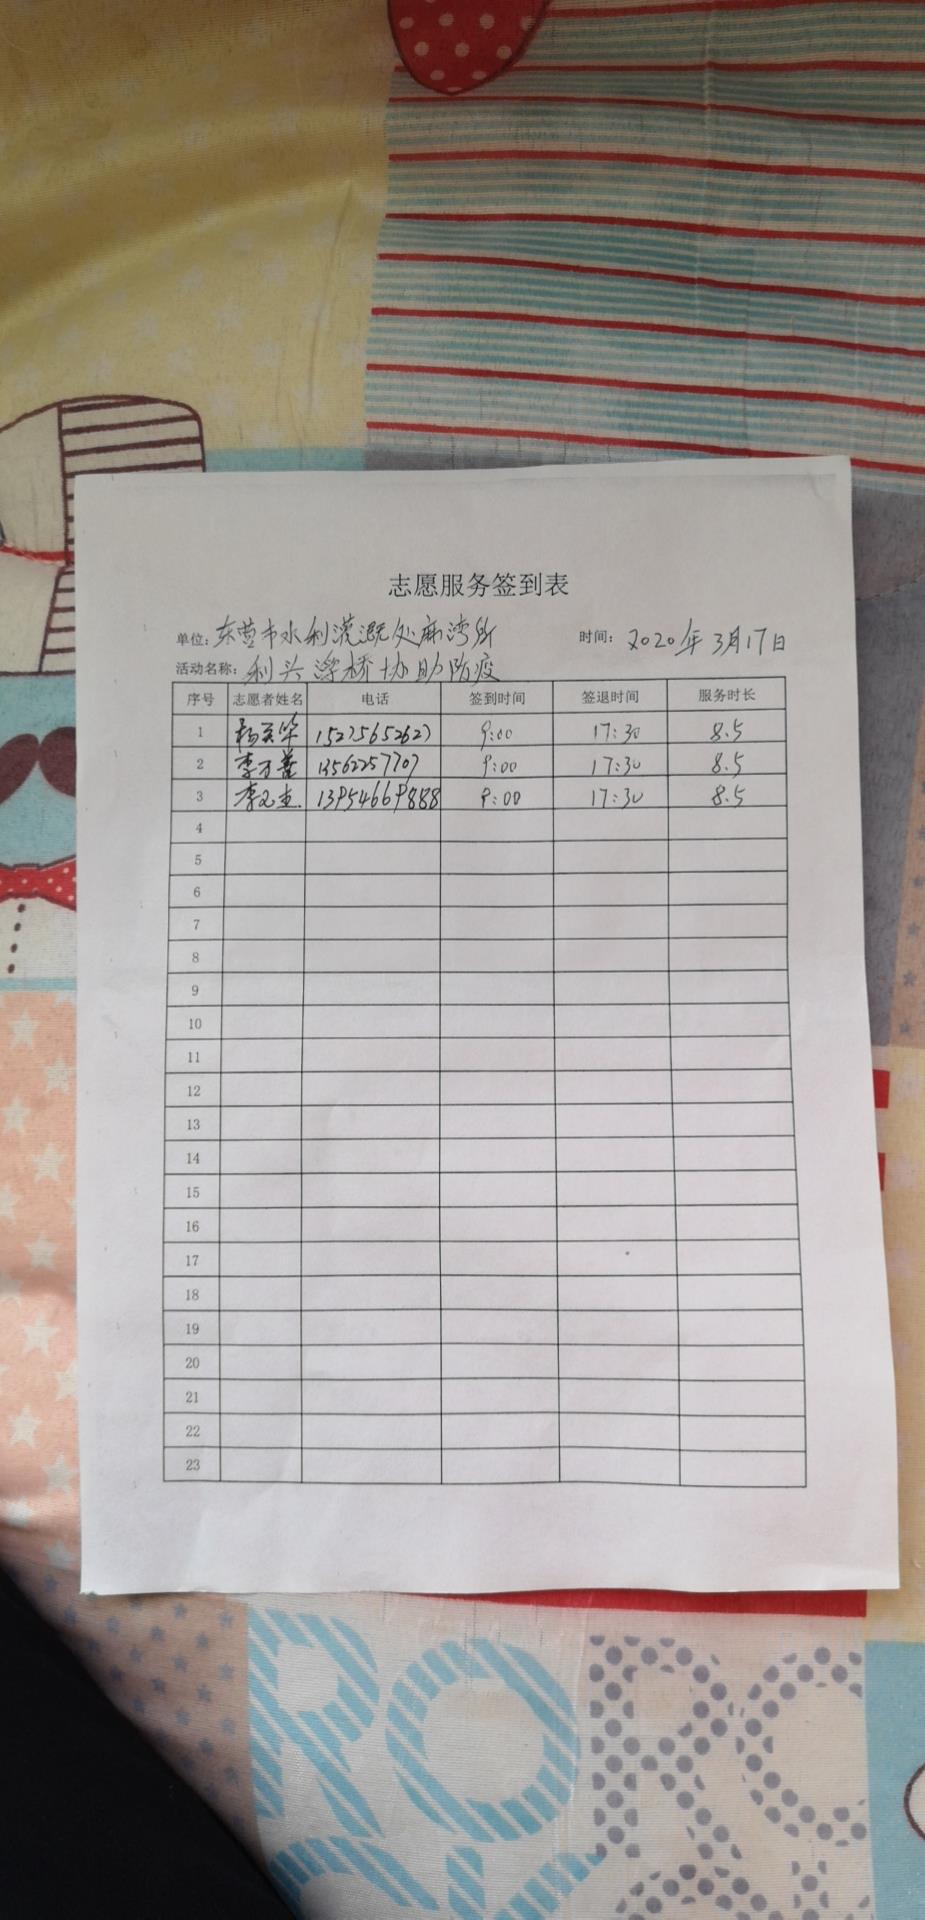 志愿服务签到表
单位: 东营市水利灌溉处麻湾所 时间: 2020年3月17日
活动名称: 利头浮桥协助防疫
序号 志愿者姓名 电话 签到时间 签退时间 服务时长
1 15275652627 9:00 17:30 8.5
2 李万善 13562257707 9:00 17:30 8.5
3 13954669888 9:00 17:30 8.5
4
5
6
7
8
9
10
11
12
13
14
15
16
17
18
19
20
21
22
23